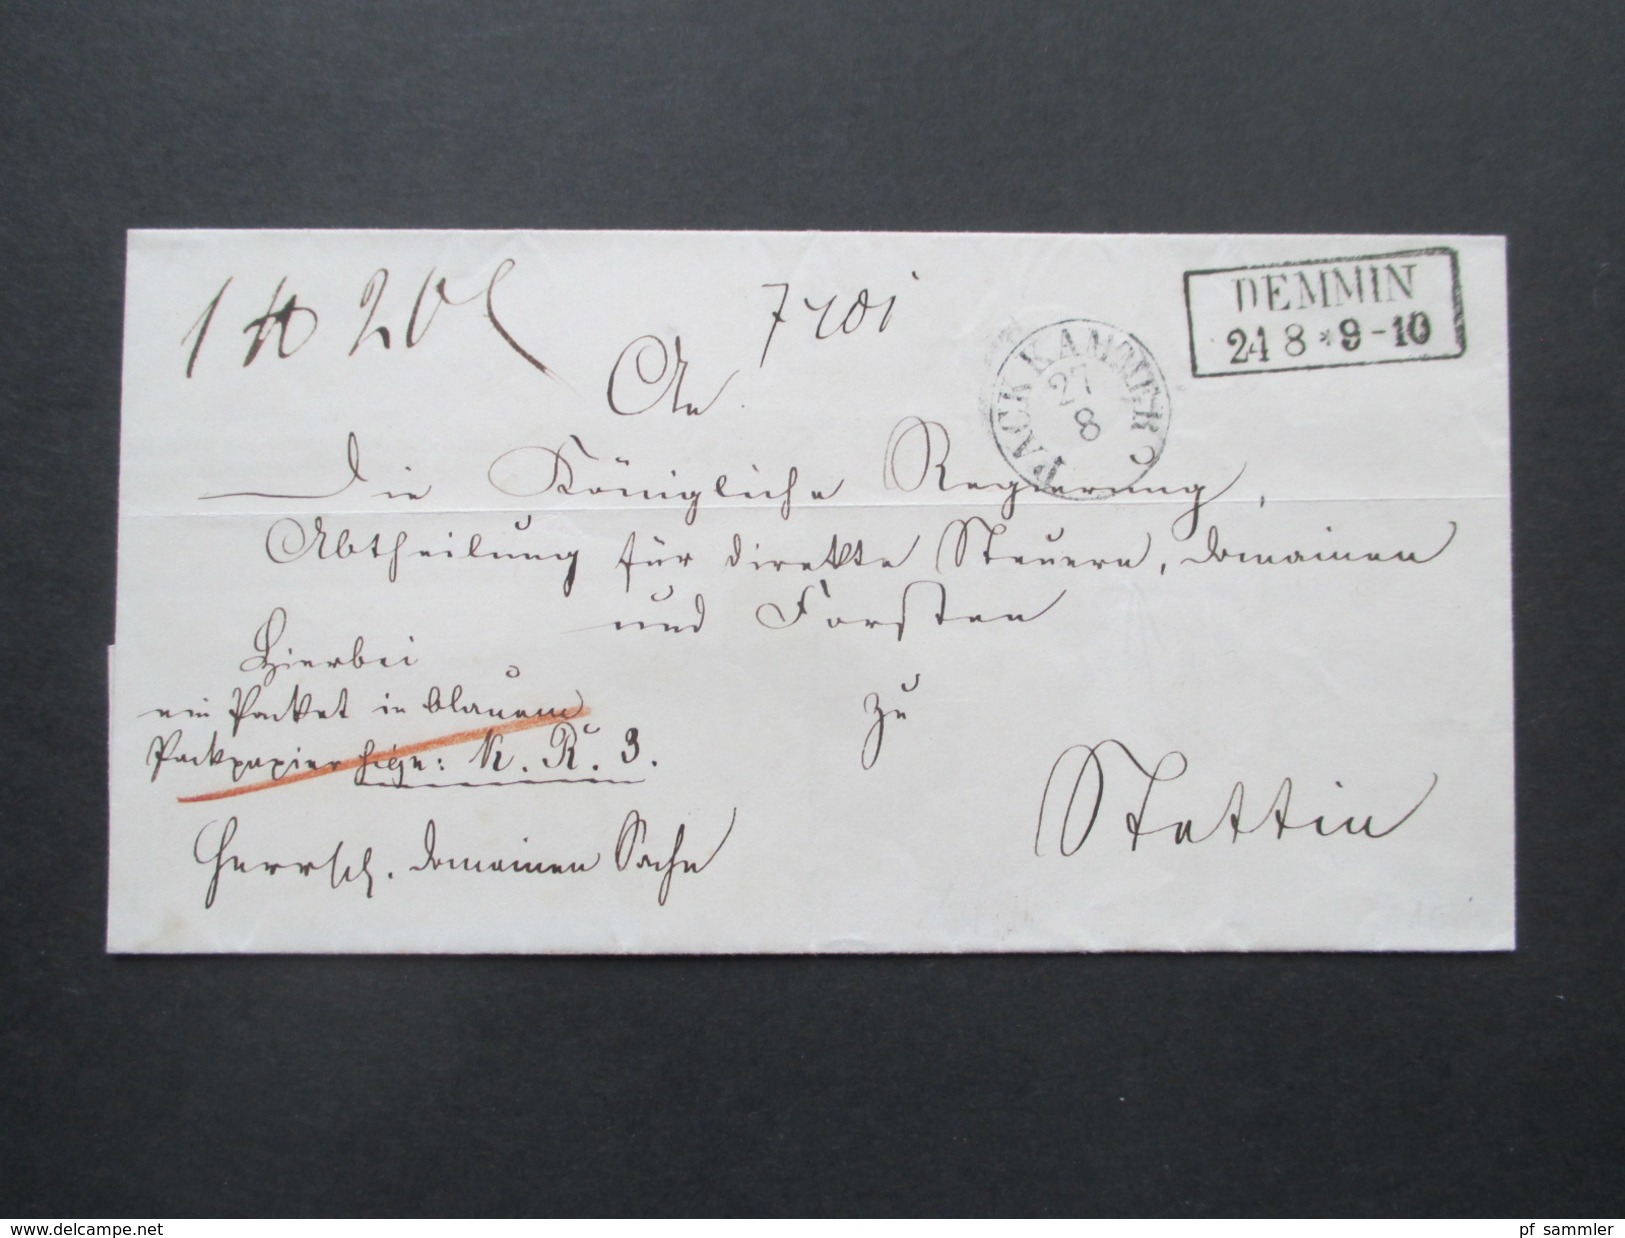 1 ℔ 20
7401
DEMMIN
24 8 * 9-10
PACKKAMMER C
27
8
An
die Königliche Regierung,
Abtheilung für direkte Steuern, Domainen
und Forsten
zu
Stettin
Hierbei
ein Packet in blauem
Packpapier sign: K. R. 3.
Herrsch. Domainen Sache
www.delcampe.net
pf_sammler